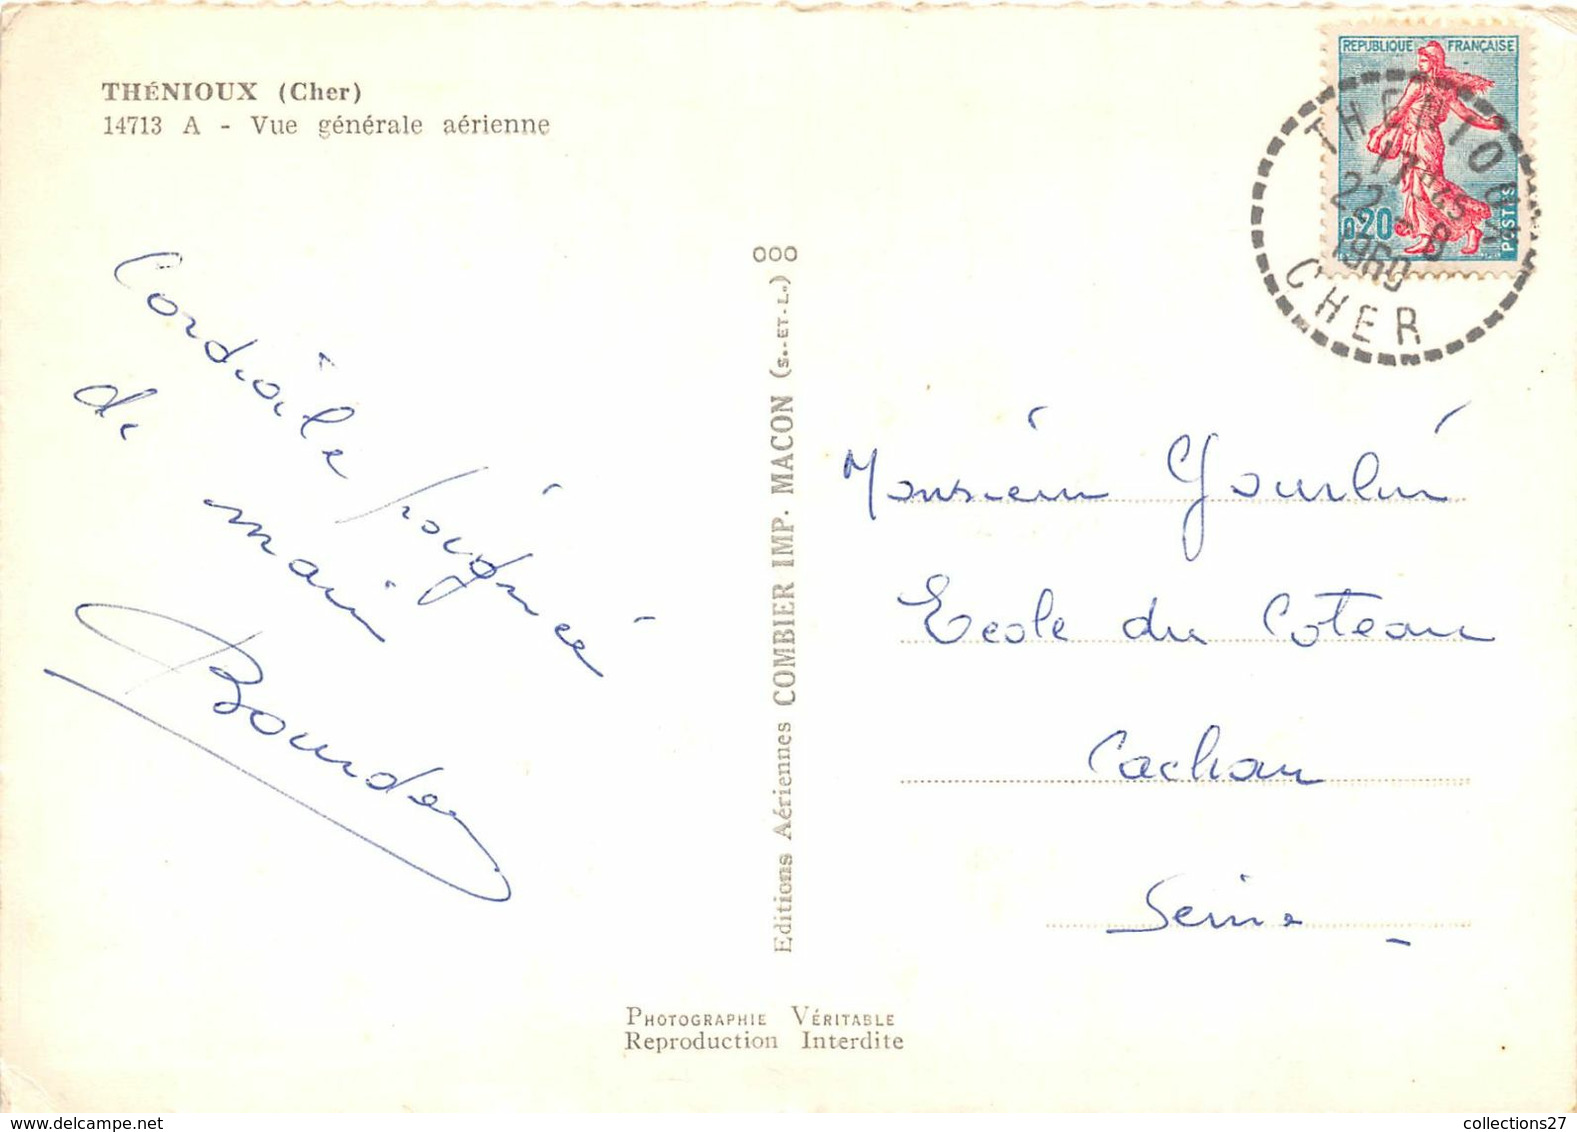 THÉNIOUX (Cher)
14713 A - Vue générale aérienne
REPUBLIQUE FRANÇAISE
0,20
POSTES
THENIOUX
17H45
22-8
1960
CHER
Cordiale poignée
de main
Editions Aériennes COMBIER IMP. MACON (S.-ET-L.)
000
Monsieur Gourlin
Ecole du Coteau
Cachan
Seine
PHOTOGRAPHIE VÉRITABLE
Reproduction Interdite
collections27